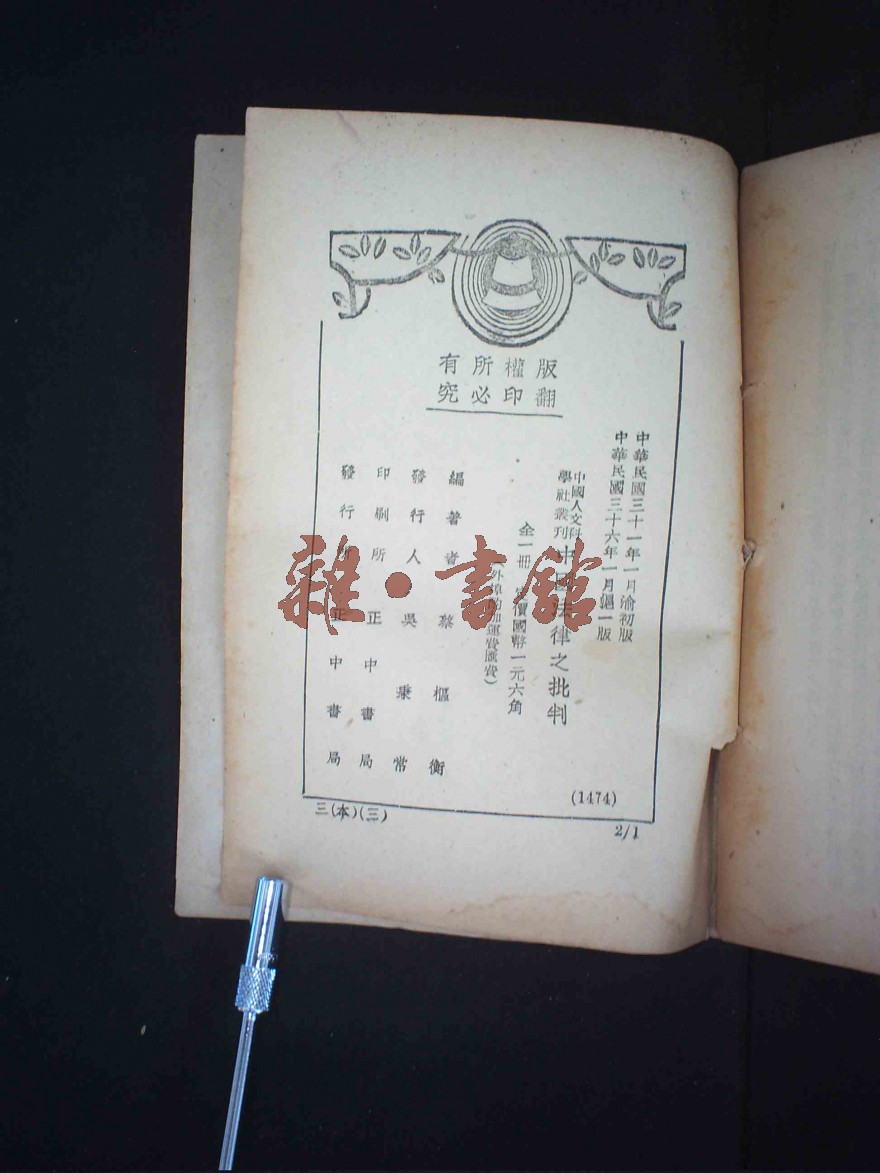 版權所有
翻印必究
中華民國三十一年一月渝初版
中華民國三十六年一月滬一版
中國人文科
學社叢刊
中國法律之批判
全一冊 定價國幣一元六角
(外埠酌加運費匯費)
編著者 蔡樞衡
發行人 吳秉常
印刷所 正中書局
發行所 正中書局
(1474)
三(本)(三)
2/1
雜·書館